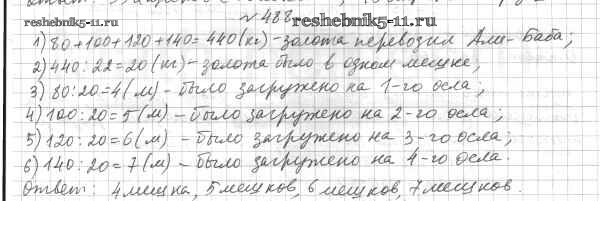 № 488
reshebnik5-11.ru
1) 80+100+120+140=440(кг)-золота перевозил Али-Баба;
2) 440:22=20(кг)-золота было в одном мешке;
3) 80:20=4(м)-было загружено на 1-го осла;
4) 100:20=5(м)-было загружено на 2-го осла;
5) 120:20=6(м)-было загружено на 3-го осла;
6) 140:20=7(м)-было загружено на 4-го осла.
Ответ: 4мешка, 5мешков, 6мешков, 7мешков.
reshebnik5-11.ru